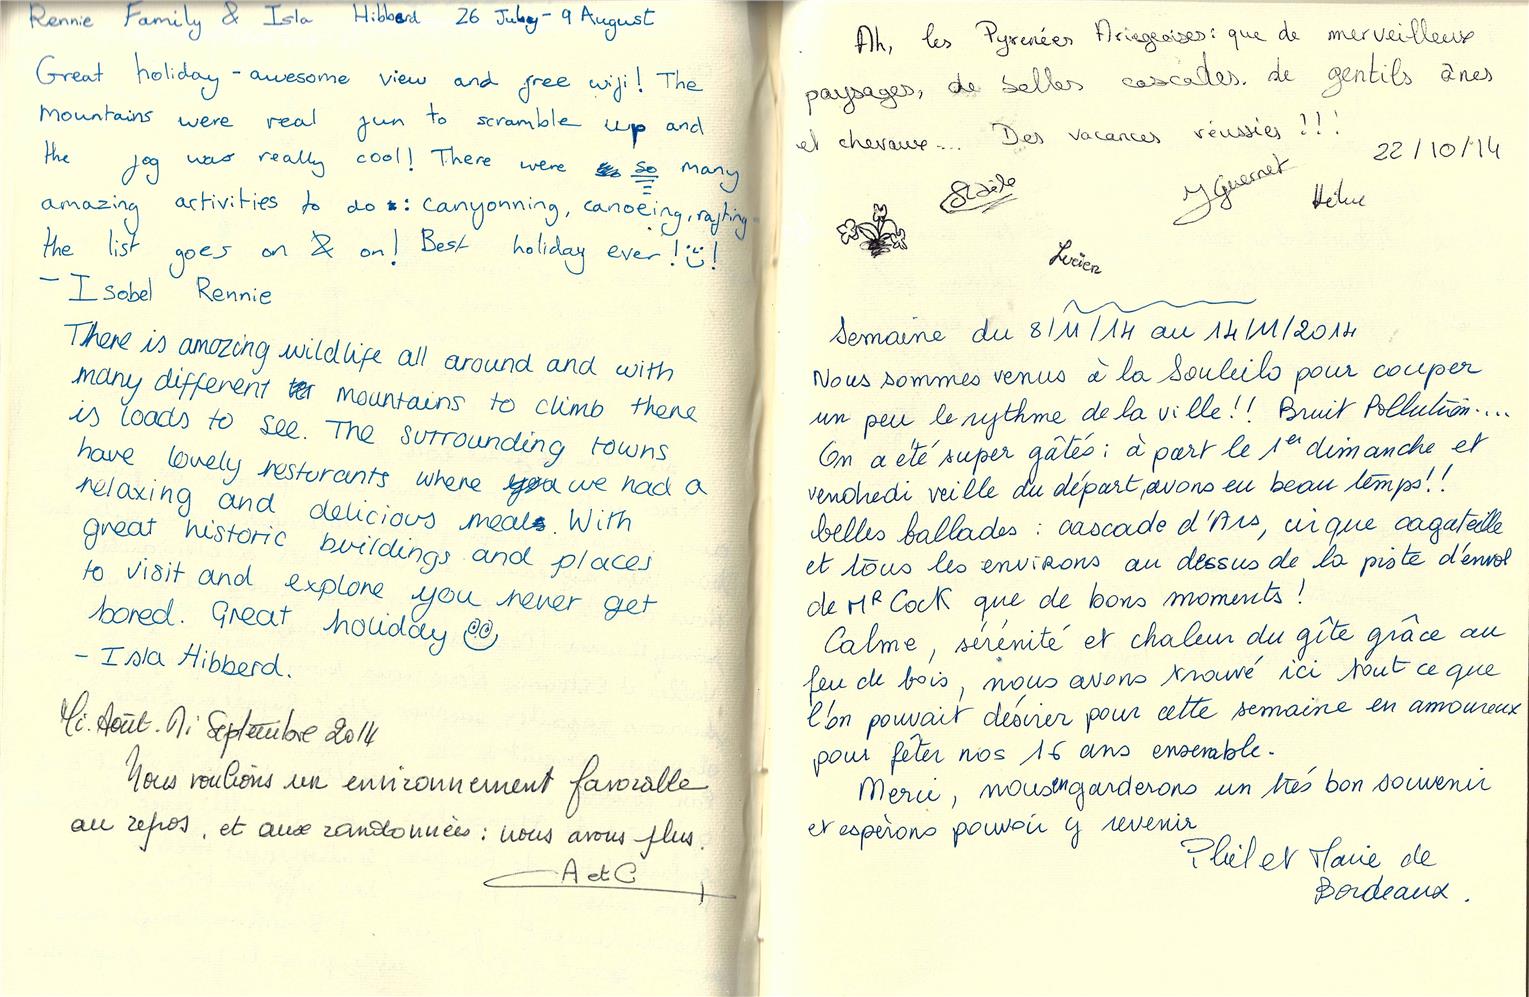 Rennie Family & Isla Hibberd 26 July - 9 August
Great holiday - awesome view and free wifi! The
mountains were real fun to scramble up and
the jog was really cool! There were so many
amazing activities to do: canyonning, canoeing, rafting
the list goes on & on! Best holiday ever!!
- Isobel Rennie
There is amazing wildlife all around and with
many different mountains to climb there
is loads to see. The surrounding towns
have lovely resturants where we had a
relaxing and delicious meals. With
great historic buildings and places
to visit and explore you never get
bored. Great holiday
- Isla Hibberd.
Mi. Août. Mi Septembre 2014
Nous voulions un environnement favorable
au repos, et aux randonnées : nous avons plus.
A et C
Ah, les Pyrenées Ariegeoises : que de merveilleux
paysages, de belles cascades. de gentils ânes
et chevaux... Des vacances réussies !!!
22/10/14
Adèle
Y Guernet
Lucien
Semaine du 8/11/14 au 14/11/2014
Nous sommes venus à la Souleilo pour couper
un peu le rythme de la ville!! Bruit Pollution....
On a été super gâtés : à part le 1er dimanche et
vendredi veille du départ, avons eu beau temps!!
belles ballades : cascade d'Ars, cirque cagateille
et tous les environs au dessus de la piste d'envol
de Mr Cock que de bons moments !
Calme, sérénité et chaleur du gîte grâce au
feu de bois, nous avons trouvé ici tout ce que
l'on pouvait désirer pour cette semaine en amoureux
pour fêter nos 16 ans ensemble.
Merci, nous en garderons un très bon souvenir
et espèrons pouvoir y revenir
Phil et Marie de
Bordeaux.